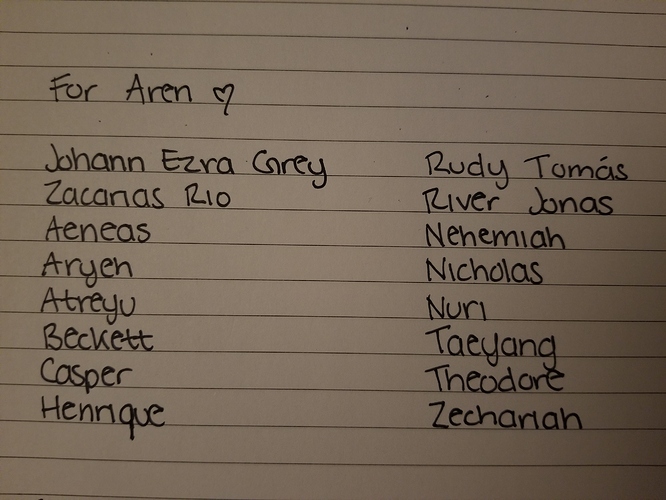 For Aren ♡
Johann Ezra Grey
Zacarias Rio
Aeneas
Aryen
Atreyu
Beckett
Casper
Henrique
Rudy Tomás
River Jonas
Nehemiah
Nicholas
Nuri
Taeyang
Theodore
Zechariah